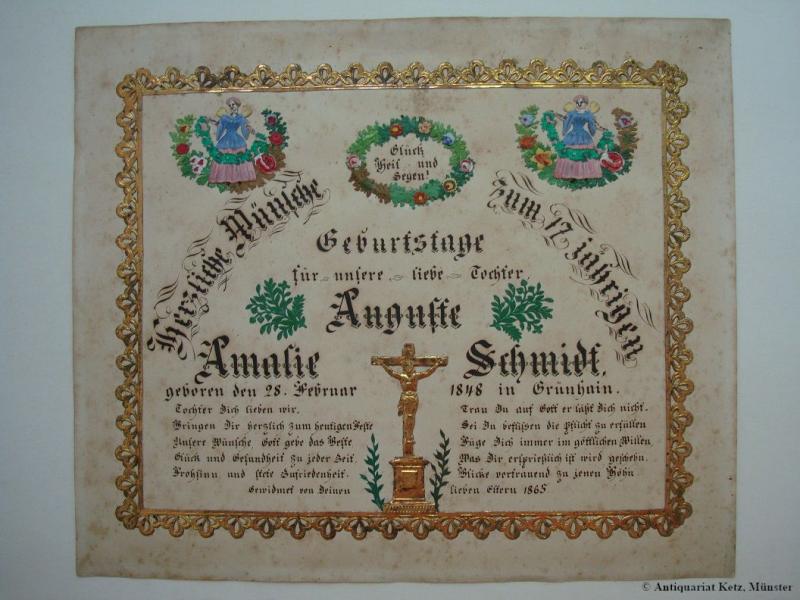 Glück
Heil und
Segen!
Herzliche Wünsche
zum 17 jährigen
Geburtstage
für unsere liebe Tochter
Auguste
Amalie Schmidt.
geboren den 28. Februar 1848 in Grünhain.
Tochter Dich lieben wir.
Bringen Dir herzlich zum heutigen Feste
Unsere Wünsche Gott gebe das Beste
Glück und Gesundheit zu jeder Zeit.
Frohsinn und stete Zufriedenheit.
Gewidmet von Deinen
Trau Du auf Gott er läßt Dich nicht.
Sei Du beflissen die Pflicht zu erfüllen
Füge Dich immer im göttlichen Willen
Was Dir ersprießlich ist wird geschehn.
Blicke vertrauend zu jenen Höhn
lieben Eltern 1865
© Antiquariat Ketz, Münster